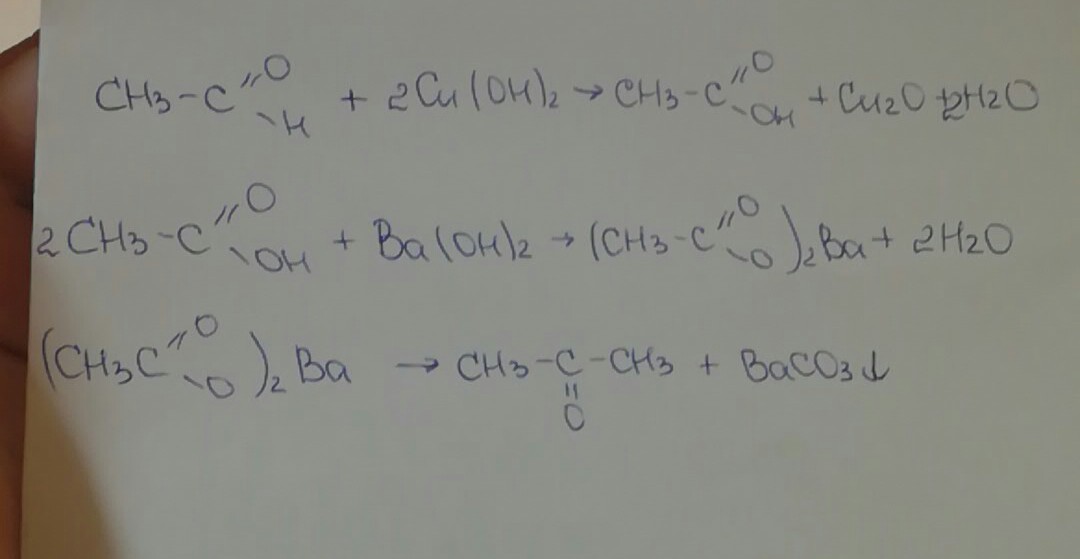 CH3-C(=O)-H + 2Cu(OH)2 → CH3-C(=O)-OH + Cu2O + 2H2O
2CH3-C(=O)-OH + Ba(OH)2 → (CH3-C(=O)-O)2Ba + 2H2O
(CH3C(=O)-O)2Ba → CH3-C(=O)-CH3 + BaCO3↓